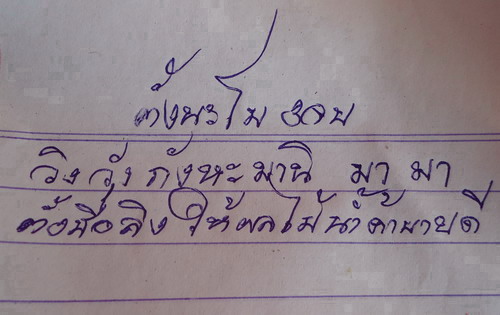 ตั้งนะโม ๓จบ
วิง วุ้ง กังหะ มานิ มา มา
ตั้งชื่อลิง ให้ผลไม้น้ำค้าขายดี